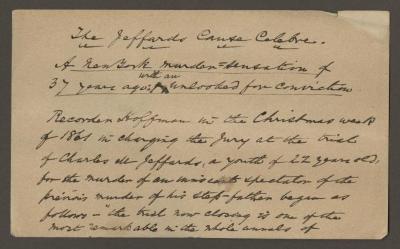 The Jeffards Cause Celebre.
A New York murder-sensation of
37 years ago, with an unlooked for conviction
Recorder Hoffman in the Christmas week
of 1861 in charging the Jury at the trial
of Charles M Jeffards, a youth of 22 years old,
for the murder of an innocent spectator of the
previous murder of his step-father began as
follows – the trial now closing is one of the
most remarkable in the whole annals of